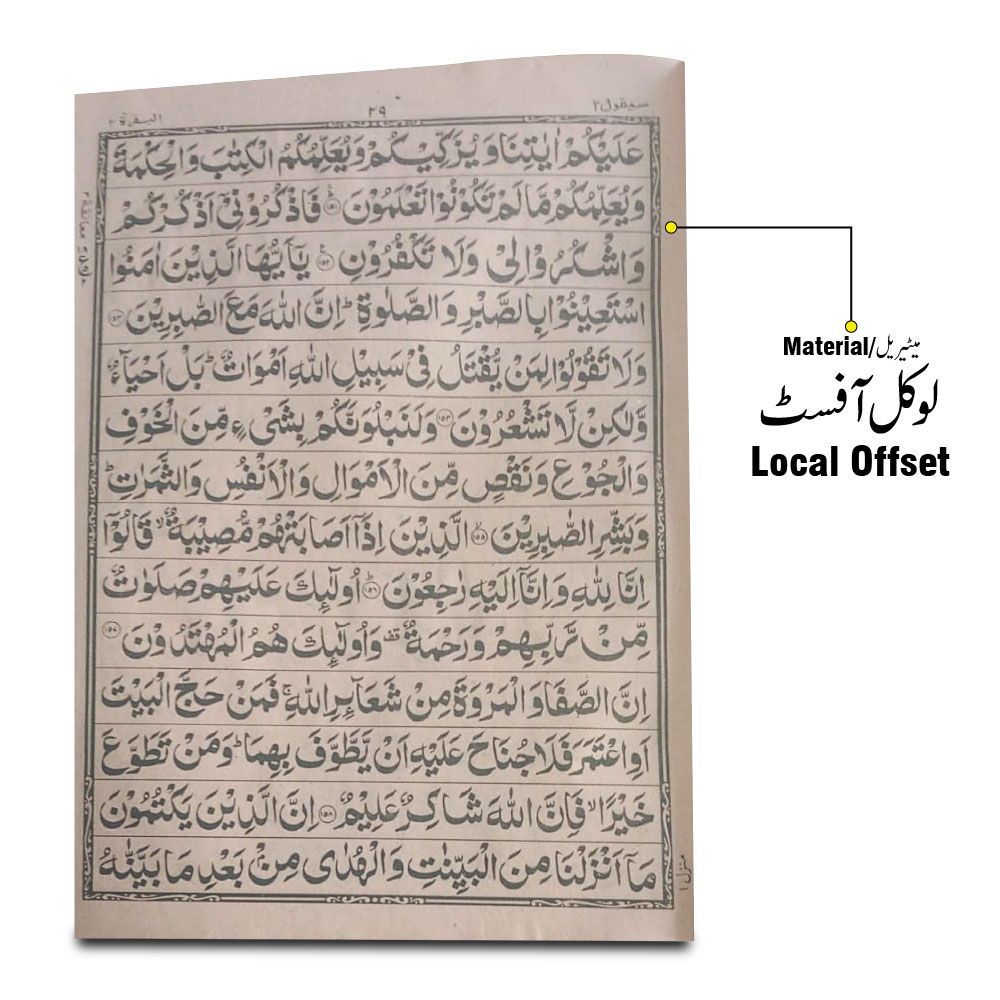 سیقول ۲
۲۹
البقرة ۲
عَلَيْكُمْ اٰيٰتِنَا وَيُزَكِّيْكُمْ وَيُعَلِّمُكُمُ الْكِتٰبَ وَالْحِكْمَةَ
وَيُعَلِّمُكُمْ مَّا لَمْ تَكُوْنُوْا تَعْلَمُوْنَ ؕ۝۱۵۱ فَاذْكُرُوْنِیْۤ اَذْكُرْكُمْ
وَاشْكُرُوْا لِیْ وَلَا تَكْفُرُوْنِ ۝۱۵۲ یٰۤاَیُّهَا الَّذِیْنَ اٰمَنُوا
اسْتَعِیْنُوْا بِالصَّبْرِ وَالصَّلٰوةِ ؕ اِنَّ اللّٰهَ مَعَ الصّٰبِرِیْنَ ۝۱۵۳
وَلَا تَقُوْلُوْا لِمَنْ یُّقْتَلُ فِیْ سَبِیْلِ اللّٰهِ اَمْوَاتٌ ؕ بَلْ اَحْیَآءٌ
وَّلٰكِنْ لَّا تَشْعُرُوْنَ ۝۱۵۴ وَلَنَبْلُوَنَّكُمْ بِشَیْءٍ مِّنَ الْخَوْفِ
وَالْجُوْعِ وَنَقْصٍ مِّنَ الْاَمْوَالِ وَالْاَنْفُسِ وَالثَّمَرٰتِ ؕ
وَبَشِّرِ الصّٰبِرِیْنَ ۙ۝۱۵۵ الَّذِیْنَ اِذَاۤ اَصَابَتْهُمْ مُّصِیْبَةٌ ۙ قَالُوْۤا
اِنَّا لِلّٰهِ وَاِنَّاۤ اِلَیْهِ رٰجِعُوْنَ ؕ۝۱۵۶ اُولٰٓئِكَ عَلَیْهِمْ صَلَوٰتٌ
مِّنْ رَّبِّهِمْ وَرَحْمَةٌ قف وَاُولٰٓئِكَ هُمُ الْمُهْتَدُوْنَ ۝۱۵۷
اِنَّ الصَّفَا وَالْمَرْوَةَ مِنْ شَعَآئِرِ اللّٰهِ ۚ فَمَنْ حَجَّ الْبَیْتَ
اَوِ اعْتَمَرَ فَلَا جُنَاحَ عَلَیْهِ اَنْ یَّطَّوَّفَ بِهِمَا ؕ وَمَنْ تَطَوَّعَ
خَیْرًا ۙ فَاِنَّ اللّٰهَ شَاكِرٌ عَلِیْمٌ ۝۱۵۸ اِنَّ الَّذِیْنَ یَكْتُمُوْنَ
مَاۤ اَنْزَلْنَا مِنَ الْبَیِّنٰتِ وَالْهُدٰی مِنْۢ بَعْدِ مَا بَیَّنّٰهُ
منزل ۱
Material/میٹیریل
لوکل آفسٹ
Local Offset